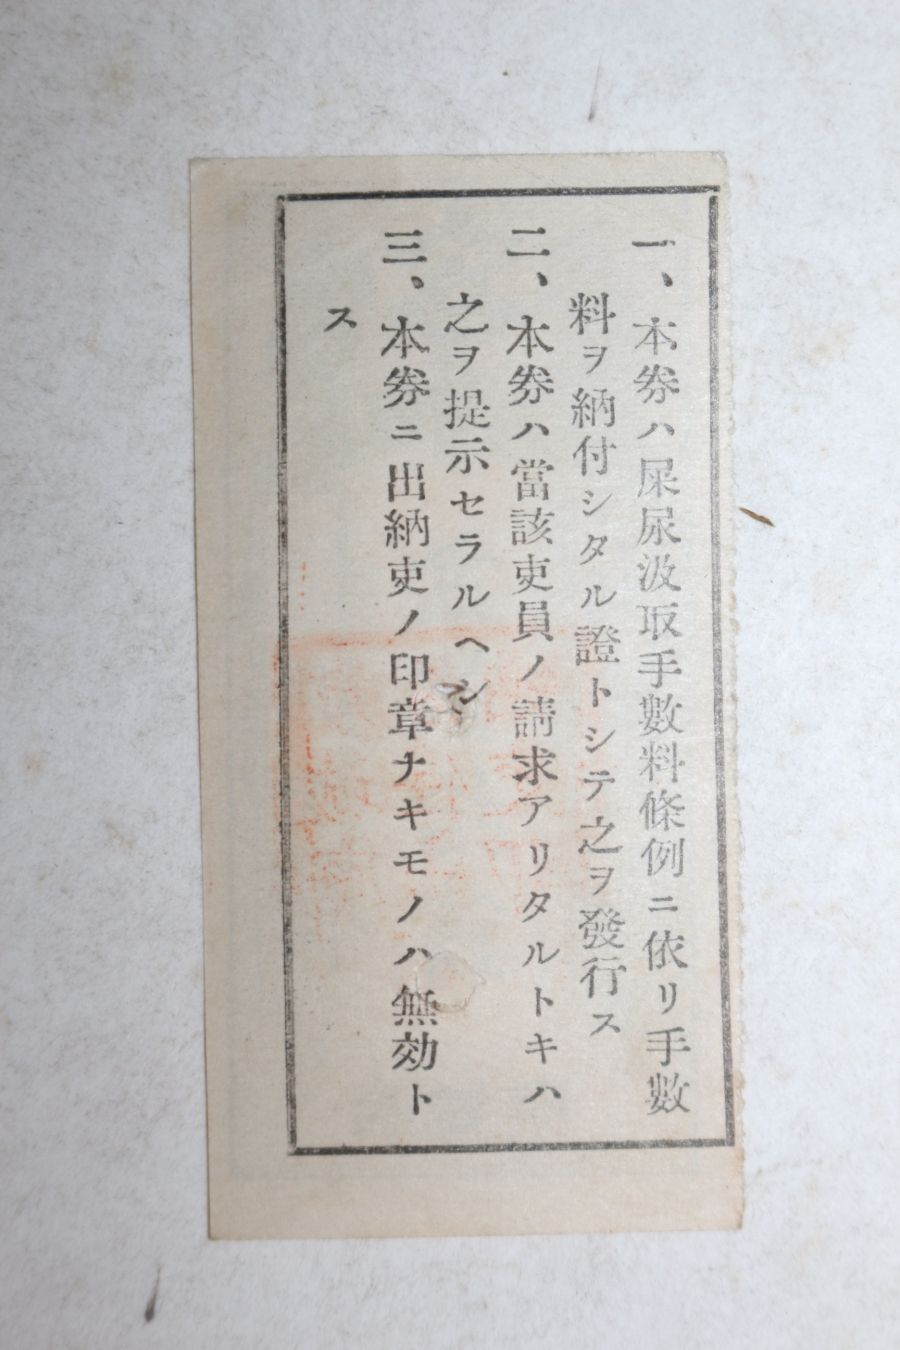 一、本券ハ屎尿汲取手數料條例ニ依リ手數
料ヲ納付シタル證トシテ之ヲ發行ス
二、本券ハ當該吏員ノ請求アリタルトキハ
之ヲ提示セラルヘシ
三、本券ニ出納吏ノ印章ナキモノハ無効ト
ス